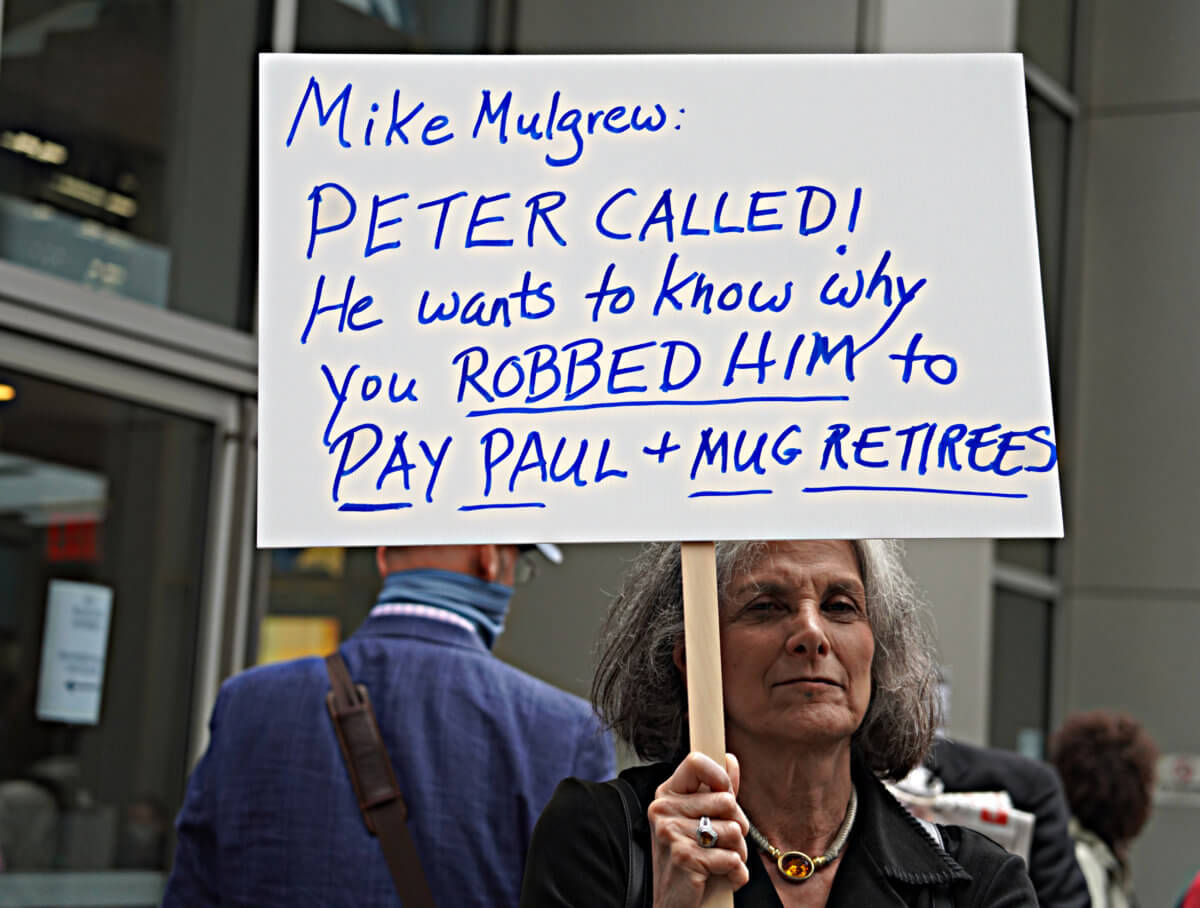 Mike Mulgrew:
PETER CALLED!
He wants to know why
you ROBBED HIM to
PAY PAUL + MUG RETIREES